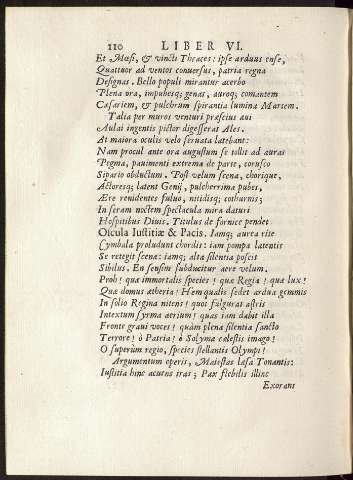 110 LIBER VI.
Et Mœsi, & vincti Thraces: ipse arduus ense,
Quattuor ad ventos conuersus, patria regna
Designas. Bello populi mirantur acerbo
Plena ora, impubesq; genas, auroq; comantem
Cæsariem, & pulchrum spirantia lumina Martem.
Talia per muros venturi præscius aui
Aulai ingentis pictor digesserat Ales.
At maiora oculis velo seruata latebant:
Nam procul ante ora augustum se tollit ad auras
Pegma, pauimenti extrema de parte, corusco
Sipario obductum. Post velum scenæ, chorique,
Actoresq; latent Genij, pulcherrima pubes,
Ære renidentes fuluo, nitidisq; cothurnis;
In seram noctem spectacula mira daturi
Hospitibus Diuis. Titulus de fornice pendet
Oscula Iustitiæ & Pacis. Iamq; aurea rite
Cymbala proludunt chordis: iam pompa latentis
Se retegit scenæ: iamq; alta silentia poscit
Sibilus. En sensim subducitur aere velum.
Proh! quæ immortalis species! quæ Regia! quæ lux!
Quæ domus ætheria! Hem qualis sedet ardua gemmis
In solio Regina nitens! quot fulgurat astris
Intextum syrma aerium! quas iam dabit illa
Fronte graui voces! quàm plena silentia sancto
Terrore! ò Patria! ò Solyma cælestis imago!
O superûm regio, species stellantis Olympi!
Argumentum operis, Maiestas læsa Tonantis:
Iustitia hinc acuens iras; Pax flebilis illinc
Exorans